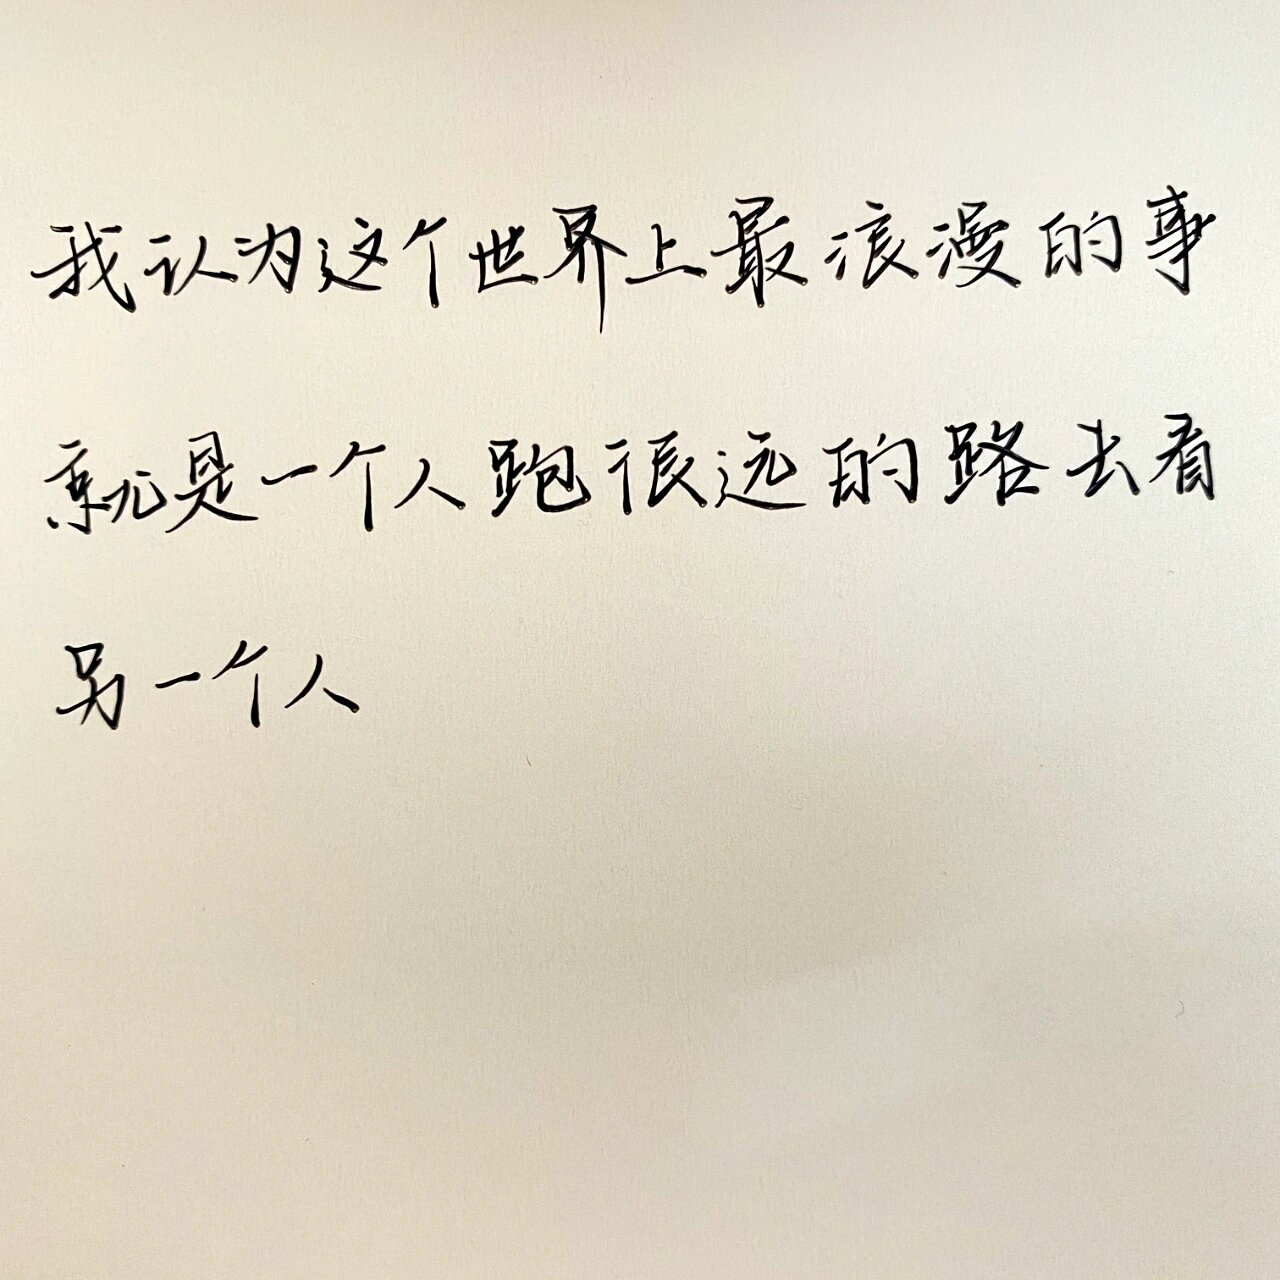 我认为这个世界上最浪漫的事
就是一个人跑很远的路去看
另一个人